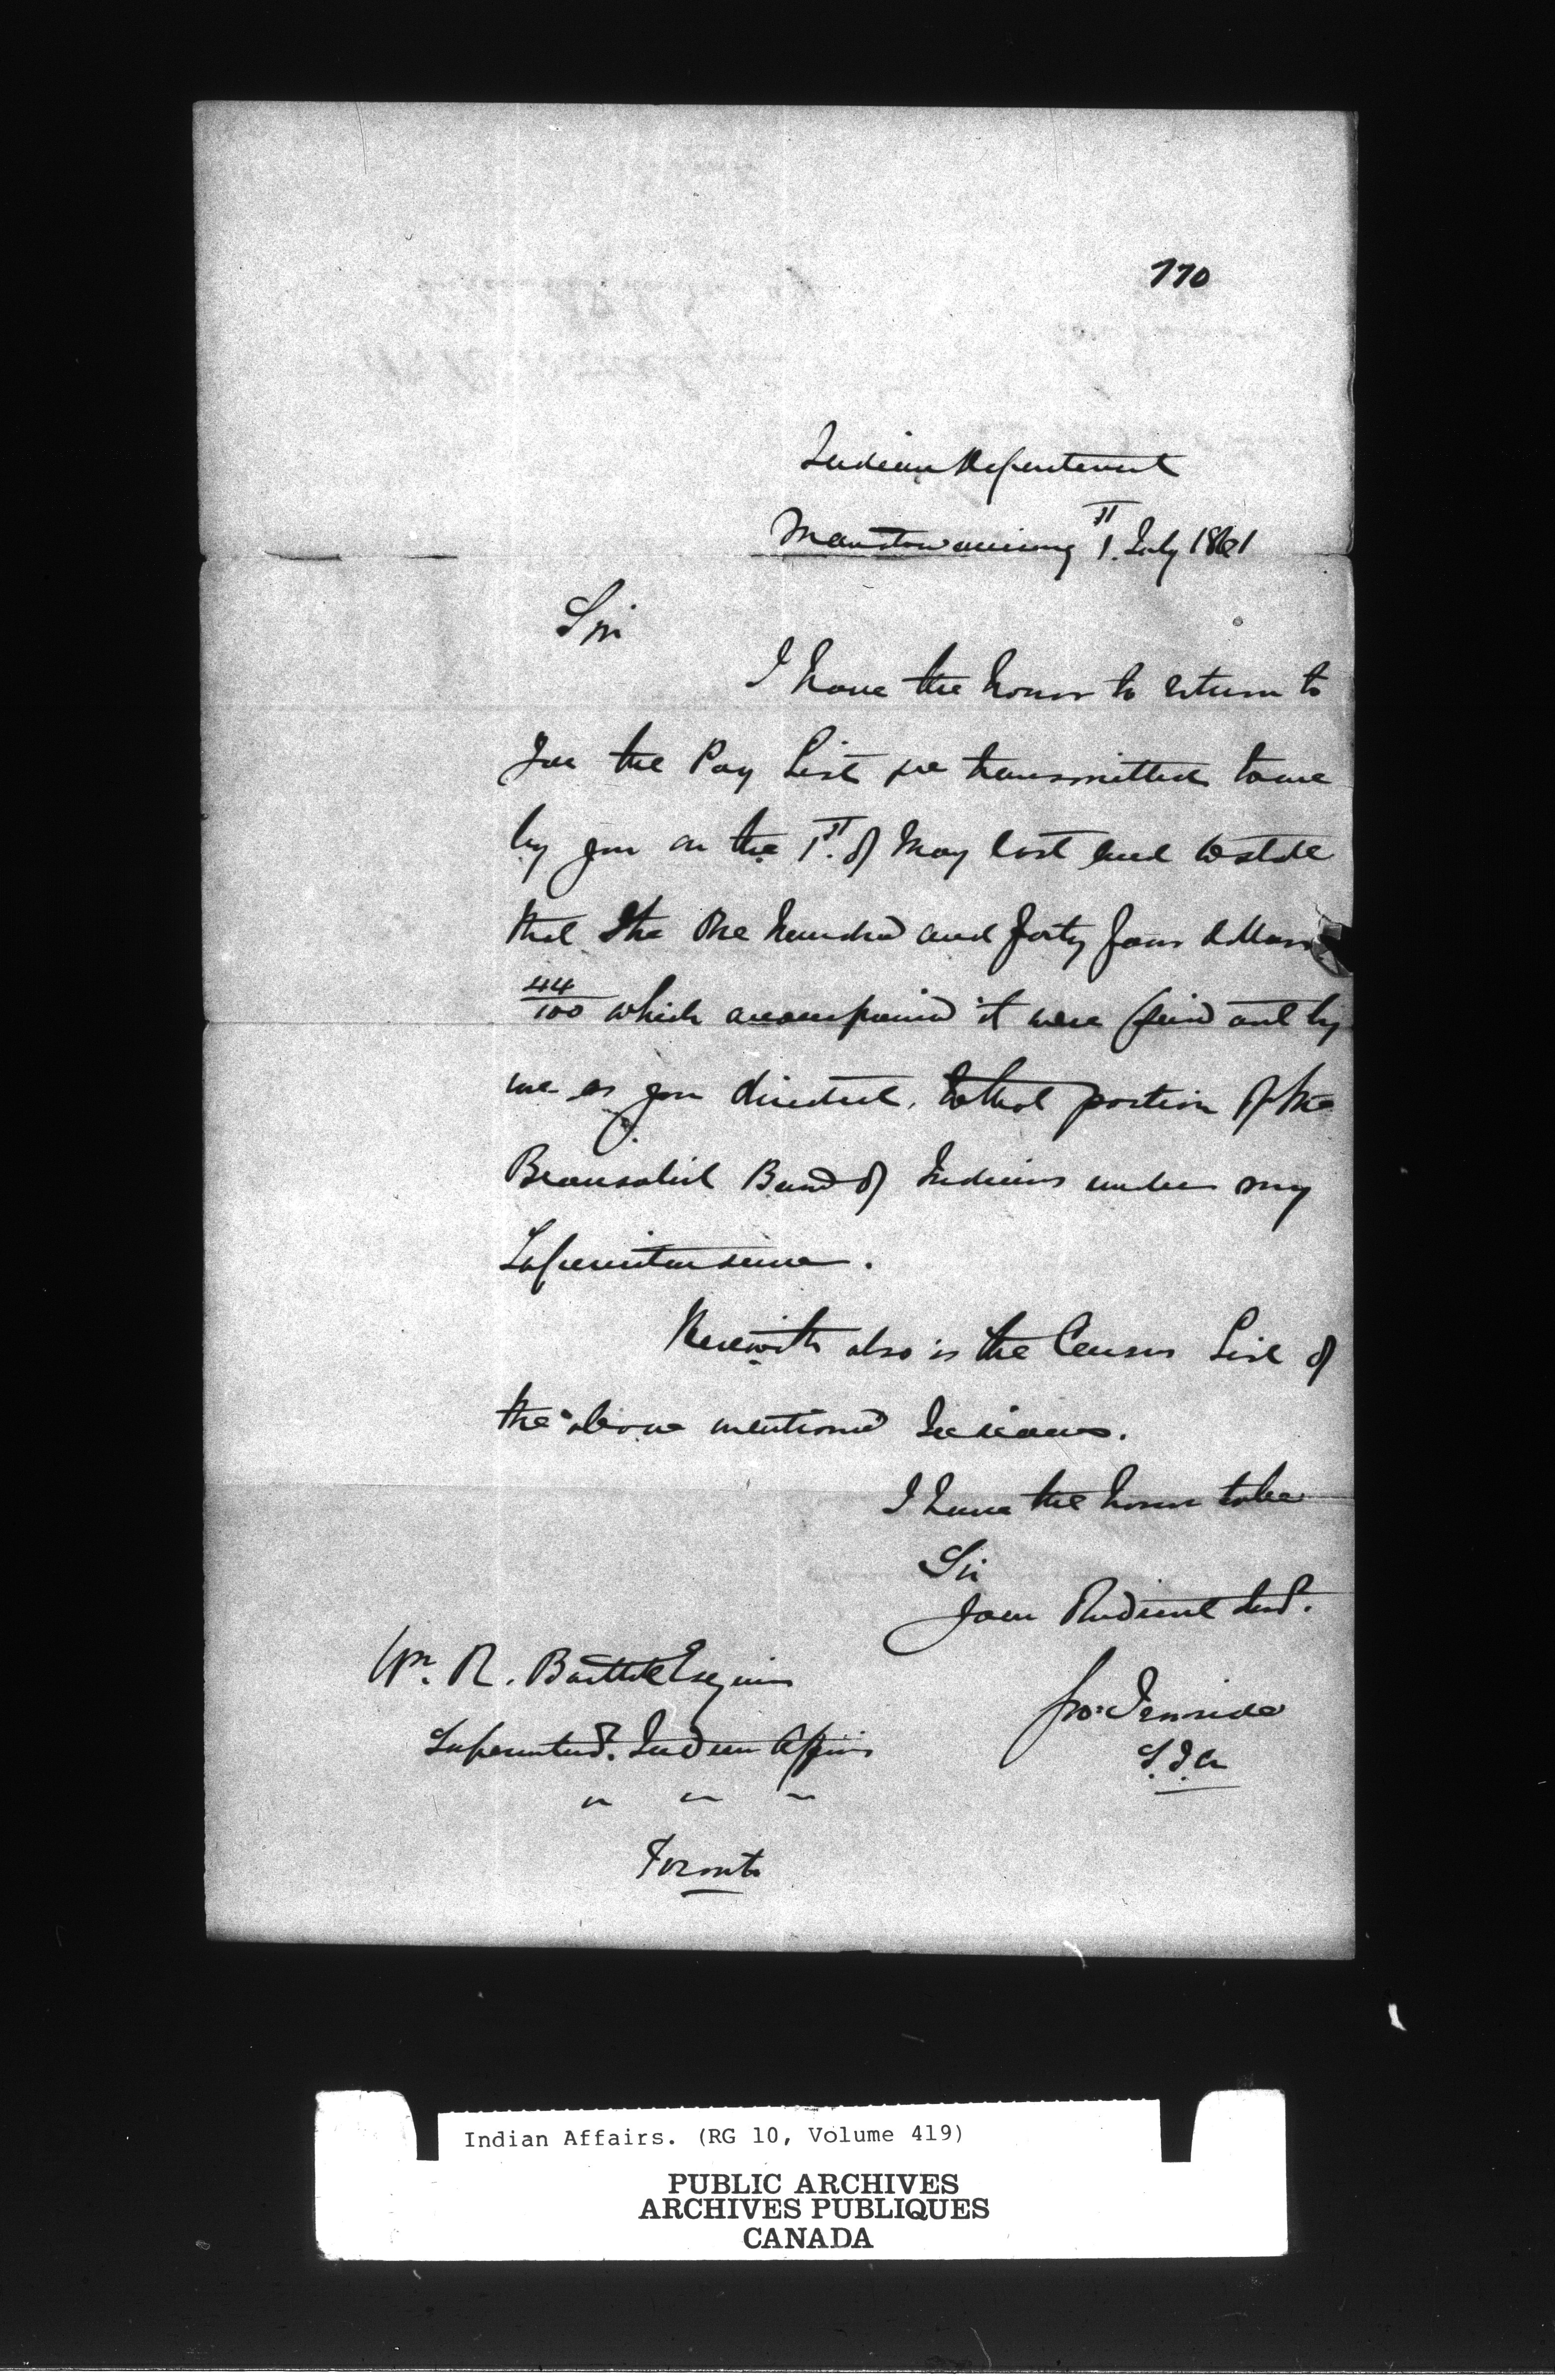 770
Indian Department
Manitowaning 1st. July 1861
Sir
I have the honor to return to
you the Pay List transmitted to me
by you on the 1st. of May last and to state
that the One hundred and forty four dollars
44/100 which accompanied it were paid out by
me as you directed, to that portion of the
Beausoliel Band of Indians under my
Superintendence.
Herewith also is the Census List of
the above mentioned Indians.
I have the honor to be
Sir
Your Obedient Servt.
Geo: Ironside
S.I.A
Wm. R. Bartlett Esquire
Superintendt. Indian Affairs
" " "
Toronto
Indian Affairs. (RG 10, Volume 419)
PUBLIC ARCHIVES
ARCHIVES PUBLIQUES
CANADA